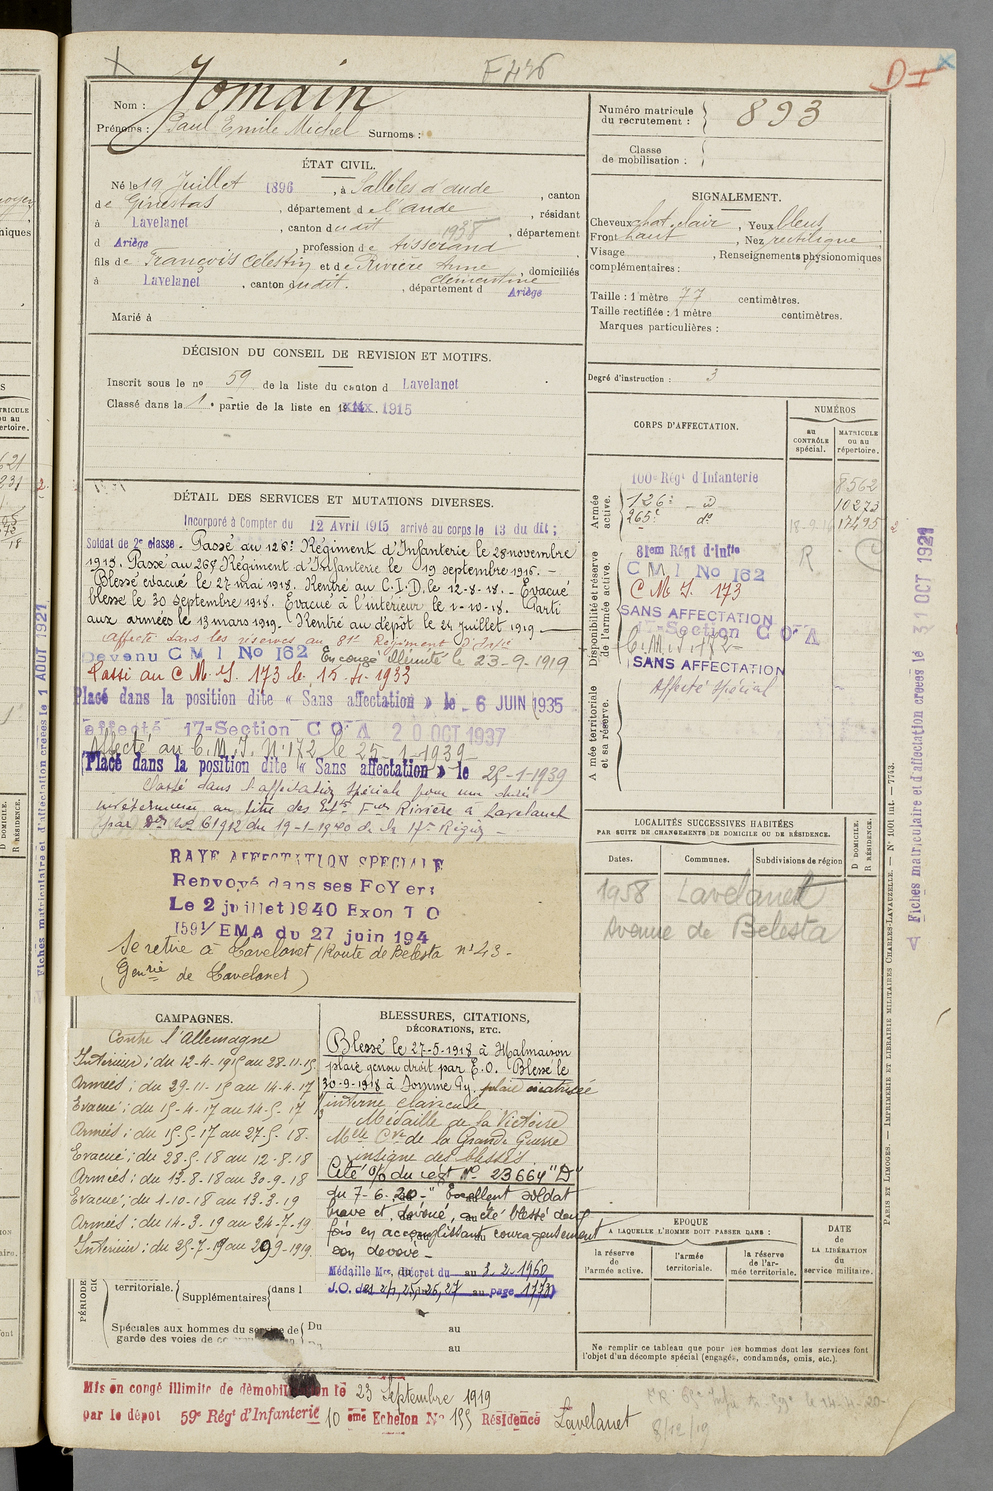 E 426
D I
Nom : Jomain
Prénoms : Paul Emile Michel Surnoms :
Numéro matricule du recrutement : 893
Classe de mobilisation :
ÉTAT CIVIL.
Né le 19 Juillet 1896, à Sallèles d'aude, canton
de Ginestas, département de l'aude, résidant
à Lavelanet, canton dudit 1938, département
d Ariège, profession de tisserand
fils de François Celestin et de Rivière Anne Clémentine, domiciliés
à Lavelanet, canton dudit., département d Ariège
Marié à
SIGNALEMENT.
Cheveux chat. clair, Yeux bleus
Front haut, Nez rectiligne
Visage , Renseignements physionomiques
complémentaires :
Taille : 1 mètre 77 centimètres.
Taille rectifiée : 1 mètre centimètres.
Marques particulières :
Degré d'instruction : 3
DÉCISION DU CONSEIL DE REVISION ET MOTIFS.
Inscrit sous le no 59 de la liste du canton d Lavelanet
Classé dans la 1e partie de la liste en 1915
DÉTAIL DES SERVICES ET MUTATIONS DIVERSES.
Incorporé à Compter du 12 Avril 1915 arrivé au corps le 13 du dit ;
Soldat de 2e classe. Passé au 126e Régiment d'Infanterie le 28 novembre
1915. Passé au 265e Régiment d'Infanterie le 19 septembre 1916. —
Blessé évacué le 27 mai 1918. Rentré au C.I.D. le 12-8-18. — Evacué
blessé le 30 septembre 1918. Evacué à l'intérieur le 1-10-18. Parti
aux armées le 13 mars 1919. Rentré au dépôt le 24 juillet 1919
affecté dans les réserves au 81e Régiment d'Infie
Devenu C M I No 162 En congé illimité le 23-9-1919
Passé au C M. I. 173 le 15.4.1933
Placé dans la position dite « Sans affectation » le 6 JUIN 1935
affecté 17e Section C O A 20 OCT 1937
Affecté au C.M.I. No 172 le 25-1-1939
Placé dans la position dite « Sans affectation » le 25-1-1939
Classé dans l'affectation spéciale pour une durée
indéterminée au titre des Ets Fres Rivière à Lavelanet
RAYE AFFECTATION SPECIALE
Renvoyé dans ses FoYers
Le 2 juillet 1940 Exon T O
1591/ EMA du 27 juin 194
Se retire à Lavelanet (Route de Bélesta no 43 -
(Genrie de Lavelanet)
CORPS D'AFFECTATION.
NUMÉROS
au CONTRÔLE spécial.
MATRICULE ou au répertoire.
Armée active.
100e Régt d'Infanterie 8562
126e d 10273
265e do 17495
Disponibilité et réserve de l'armée active.
81eme Régt d'Infie R
C M I No 162
C M I. 173
SANS AFFECTATION
17e Section C O A
C.M.I. 172
SANS AFFECTATION
Affecté spécial
Armée territoriale et sa réserve.
LOCALITÉS SUCCESSIVES HABITÉES
PAR SUITE DE CHANGEMENTS DE DOMICILE OU DE RÉSIDENCE.
Dates. Communes. Subdivisions de région
D DOMICILE.
R RÉSIDENCE.
1958 Lavelanet
Avenue de Belesta
CAMPAGNES.
Contre l'Allemagne
Intérieur : du 12-4-1915 au 28-11-15
Armées : du 29-11-15 au 14-4-17
Evacué : du 15-4-17 au 14-5-17
Armées : du 15-5-17 au 27-5-18.
Evacué : du 28-5-18 au 12-8-18
Armées : du 13-8-18 au 30-9-18
Evacué : du 1-10-18 au 13-3-19
Armées : du 14-3-19 au 24-7-19
Intérieur : du 25-7-19 au 22-9-1919.
BLESSURES, CITATIONS,
DÉCORATIONS, ETC.
Blessé le 27-5-1918 à Malmaison
plaie genou droit par E.O. Blessé le
30-9-1918 à Somme Py. plaie cicatrisée
interne clavicule
Médaille de la Victoire
Melle Cve de la Grande Guerre
insigne des blessés
Cité O/ du régt No 23664 "D"
du 7-6-20 - "Excellent soldat
brave et dévoué, a été blessé deux
fois en accomplissant courageusement
son devoir -
Médaille Mre, décret du 3.2.1960
J.O. des 25, 26, 27 page 1773
territoriale. Supplémentaires dans l
Spéciales aux hommes du service de Du au
garde des voies de au
EPOQUE
A LAQUELLE L'HOMME DOIT PASSER DANS :
la réserve de l'armée active.
l'armée territoriale.
la réserve de l'armée territoriale.
DATE
DE LA LIBÉRATION
du service militaire.
Ne remplir ce tableau que pour les hommes dont les services font
l'objet d'un décompte spécial (engagés, condamnés, omis, etc.).
Mis en congé illimité de démobilisation le 23 Septembre 1919
par le dépôt 59e Régt d'Infanterie 10 eme Echelon No 155 Résidence Lavelanet
8/12/19
Fiches matriculaire et d'affectation creees le 31 OCT 1921
PARIS ET LIMOGES. — IMPRIMERIE ET LIBRAIRIE MILITAIRES CHARLES-LAVAUZELLE. — No 1001 int. — 7743.
Fiches matriculaire et d'affectation creees le 1 AOUT 1921